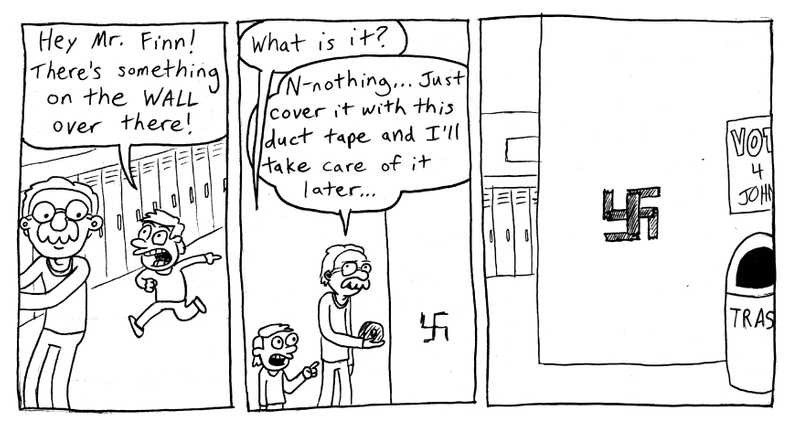 Hey Mr. Finn!
There's something
on the WALL
over there!
What is it?
N-nothing... Just
cover it with this
duct tape and I'll
take care of it
later...
VOT
4
JOHN
TRAS